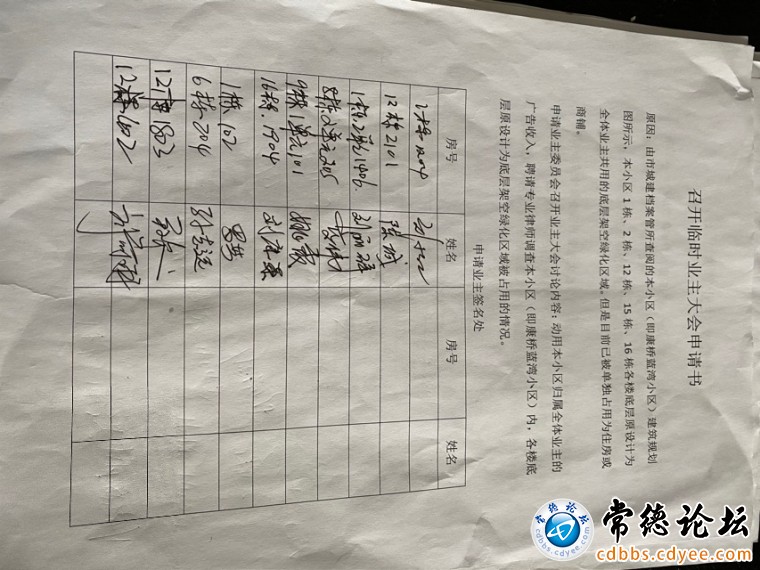 召开临时业主大会申请书
原因：由市城建档案管所查阅的本小区（即康桥蓝湾小区）建筑规划
图所示，本小区1栋、2栋、12栋、15栋、16栋各楼底层原设计为
全体业主共用的底层架空绿化区域。但是目前已被单独占用为住房或
商铺。
申请业主委员会召开业主大会讨论内容：动用本小区归属全体业主的
广告收入，聘请专业律师调查本小区（即康桥蓝湾小区）内，各楼底
层原设计为底层架空绿化区域被占用的情况。
申请业主签名处
房号 姓名 房号 姓名
12栋2101
1栋2单元1406
8栋2单元205
9栋1单元101
16栋.1904
1栋102
6栋204
12栋1803
12栋602
常德论坛
cdbbs.cdyee.com